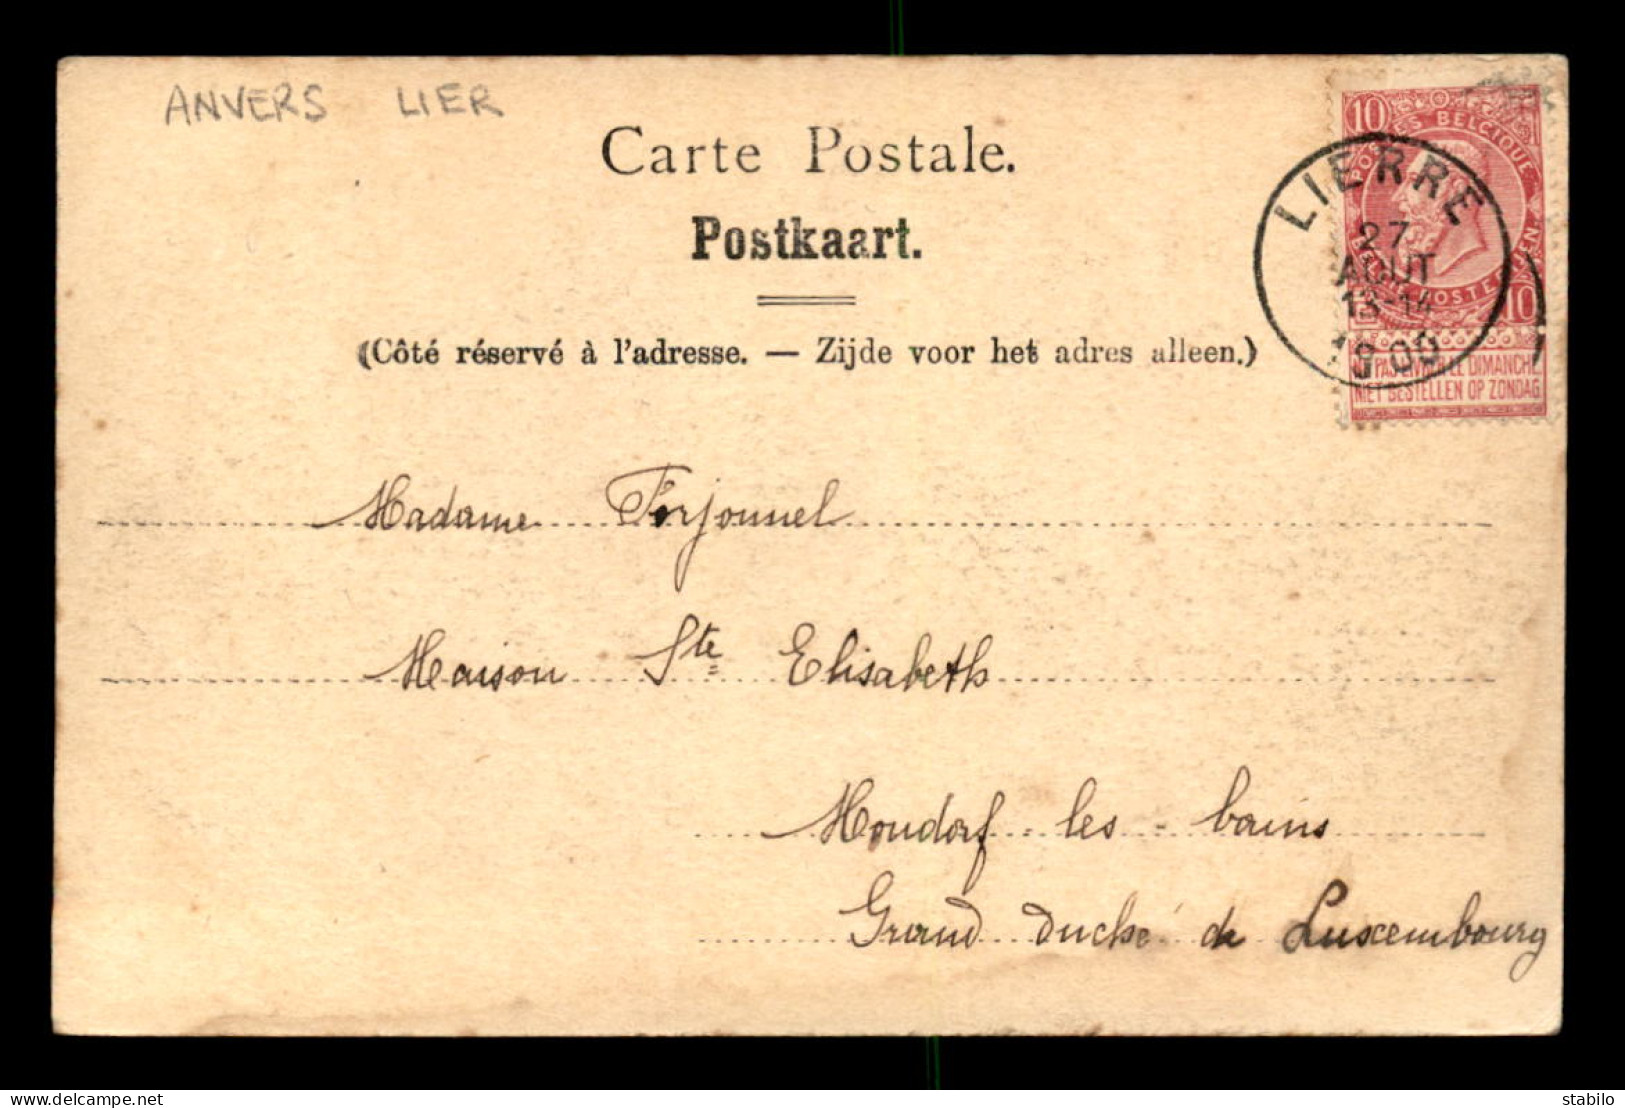 ANVERS LIER
Carte Postale.
Postkaart.
(Côté réservé à l'adresse. — Zijde voor het adres alleen.)
10
POSTES BELGIQUE
BELGIË POSTERIJEN
10
NE PAS LIVRER LE DIMANCHE
NIET BESTELLEN OP ZONDAG
LIERRE
27
AOUT
13-14
1900
Madame Forjonnel
Maison Ste Elisabeth
Mondorf - les - bains
Grand Duché de Luxembourg
delcampe.net
stabilo